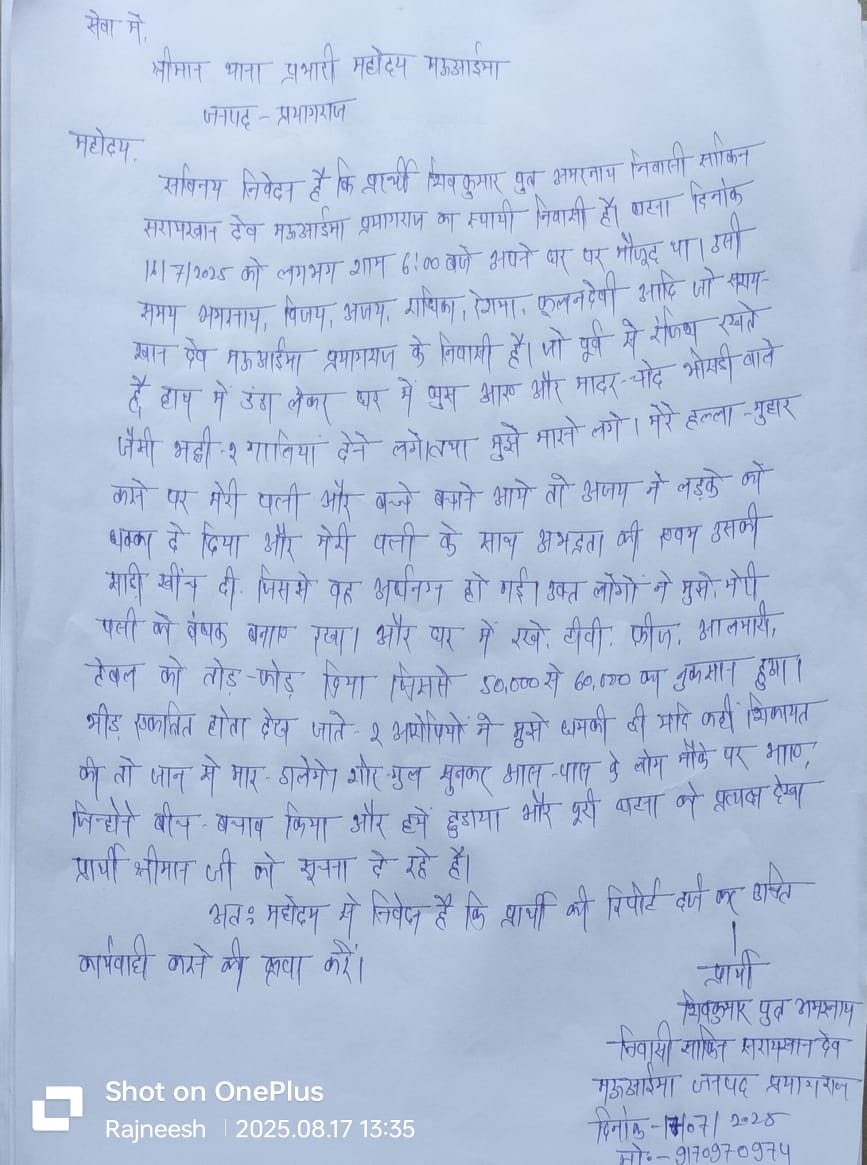 सेवा में,
श्रीमान थाना प्रभारी महोदय मऊआईमा
जनपद - प्रयागराज
महोदय,
सविनय निवेदन है कि प्रार्थी शिवकुमार पुत्र अमरनाथ निवासी साकिन
सरायख्वान देव मऊआईमा प्रयागराज का स्थायी निवासी है। घटना दिनांक
/7/2025 को लगभग शाम 6:00 बजे अपने घर पर मौजूद था। उसी
समय अमरनाथ, विजय, अजय, राधिका, रेशमा, फूलनदेवी आदि जो सराय-
खान देव मऊआईमा प्रयागराज के निवासी है। जो पूर्व से रंजिश रखते
है, हाथ में डंडा लेकर घर में घुस आए और मादर-चोद भोसडी वाले
जैसी भद्दी-२ गालियां देने लगे। तथा मुझे मारने लगे। मेरे हल्ला-गुहार
करने पर मेरी पत्नी और बच्चे बचाने आये तो अजय ने लड़के को
धक्का दे दिया और मेरी पत्नी के साथ अभद्रता की एवम उसकी
साड़ी खींच दी. जिससे वह अर्धनग्न हो गई। उक्त लोगों ने मुझे, मेरी
पत्नी को बंधक बनाए रखा। और घर में रखे. टीवी. फ्रीज. आलमारी,
टेबल को तोड़-फोड़ दिया जिससे 50,000 से 60,000 का नुकसान हुआ।
भीड़ एकत्रित होता देख जाते-२ आरोपियों ने मुझे धमकी दी यदि कहीं शिकायत
की तो जान से मार-डालेगे। शोर-गुल सुनकर आस-पास के लोग मौके पर आए,
जिन्होंने बीच-बचाव किया और हमें छुडाया और पूरी घटना को प्रत्यक्ष देखा
प्रार्थी श्रीमान जी को सूचना दे रहे है।
अतः महोदय से निवेदन है कि प्रार्थी की रिपोर्ट दर्ज कर उचित
कार्यवाही करने की कृपा करें।
प्रार्थी
शिवकुमार पुत्र अमरनाथ
निवासी साकिन सरायखान देव
मऊआईमा जनपद प्रयागराज
दिनांक - /07/2025
मो॰ - 9170970974
Shot on OnePlus
Rajneesh | 2025.08.17 13:35